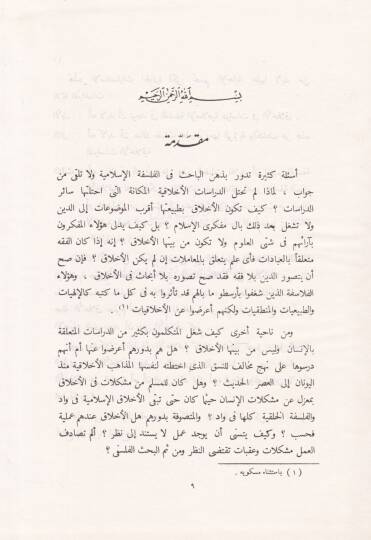 بسم الله الرحمن الرحيم
مقدمة
أسئلة كثيرة تدور بذهن الباحث فى الفلسفة الإسلامية ولا تلقى من
جواب ، لماذا لم تحتل الدراسات الأخلاقية المكانة التى احتلتها سائر
الدراسات ؟ كيف تكون الأخلاق بطبيعتها أقرب الموضوعات إلى الدين
ولا تشغل بعد ذلك بال مفكرى الإسلام ؟ بل كيف يدلى هؤلاء المفكرون
بآرائهم فى شتى العلوم ولا تكون من بينها الأخلاق ؟ إنه إذا كان الفقه
متعلقاً بالعبادات فأى علم يتعلق بالمعاملات إن لم يكن الأخلاق ؟ فإن صح
أن يتصور الدين بلا فقه فقد صح تصوره بلا أبحاث فى الأخلاق ، وهؤلاء
الفلاسفة الذين شغفوا بأرسطو ما بالهم قد تأثروا به فى كل ما كتبه كالإلهيات
والطبيعيات والمنطقيات ولكنهم أعرضوا عن الأخلاقيات (١) .
ومن ناحية أخرى كيف شغل المتكلمون بكثير من الدراسات المتعلقة
بالإنسان وليس من بينها الأخلاق ؟ هل هم بدورهم أعرضوا عنها أم أنهم
درسوها على نهج مخالف للنسق الذى اختطته لنفسها المذاهب الأخلاقية منذ
اليونان إلى العصر الحديث ؟ وهل كان للمسلم من مشكلات فى الأخلاق
بمعزل عن مشكلات الإنسان حيثما كان حتى تبقى الأخلاق الإسلامية فى واد
والفلسفة الخلقية كلها فى واد ؟ والمتصوفة بدورهم هل الأخلاق عندهم عملية
فحسب ؟ وكيف يتسنى أن يوجد عمل لا يستند إلى نظر ؟ ألم تصادف
العمل مشكلات وعقبات تقتضى النظر ومن ثم البحث الفلسفى ؟
(١) باستثناء مسكويه .
٩